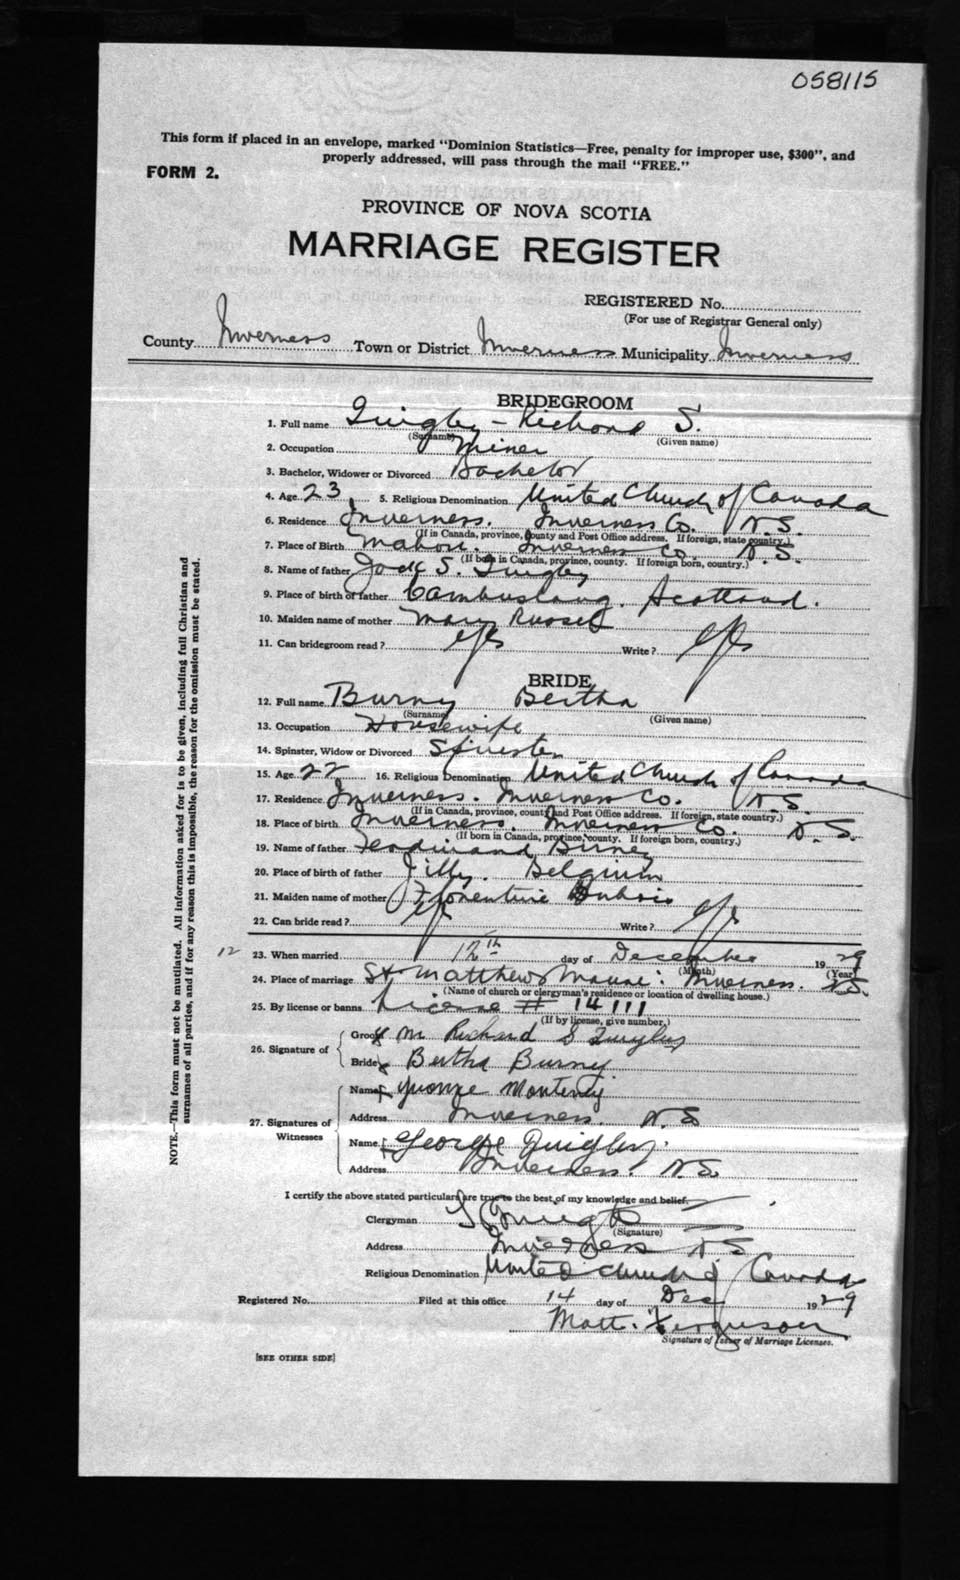 058115
This form if placed in an envelope, marked "Dominion Statistics—Free, penalty for improper use, $300", and
properly addressed, will pass through the mail "FREE."
FORM 2.
PROVINCE OF NOVA SCOTIA
MARRIAGE REGISTER
REGISTERED No.
(For use of Registrar General only)
County Inverness Town or District Inverness Municipality Inverness
BRIDEGROOM
1. Full name Quigley - Richard S.
(Surname) (Given name)
2. Occupation Miner
3. Bachelor, Widower or Divorced Bachelor
4. Age 23 5. Religious Denomination United Church of Canada
6. Residence Inverness. Inverness Co. N.S.
(If in Canada, province, county and Post Office address. If foreign, state country.)
7. Place of Birth Mabou. Inverness Co. N.S.
(If born in Canada, province, county. If foreign born, country.)
8. Name of father S. Quigley
9. Place of birth of father Cambuslang. Scotland.
10. Maiden name of mother Mary Russell
11. Can bridegroom read? yes Write? yes
BRIDE
12. Full name Burny Bertha
(Surname) (Given name)
13. Occupation Housewife
14. Spinster, Widow or Divorced Spinster
15. Age 22 16. Religious Denomination United Church of Canada
17. Residence Inverness. Inverness Co. N.S.
(If in Canada, province, county and Post Office address. If foreign, state country.)
18. Place of birth Inverness. Inverness Co. N.S.
(If born in Canada, province, county. If foreign born, country.)
19. Name of father Ferdinand Birney
20. Place of birth of father Jilly. Belgium
21. Maiden name of mother Florentine Dubois
22. Can bride read? yes Write? yes
12 23. When married 12th day of December 1929
(Month) (Year)
24. Place of marriage St. Matthews Manse. Inverness. N.S.
(Name of church or clergyman's residence or location of dwelling house.)
25. By license or banns License # 14111
(If by license, give number.)
26. Signature of Groom x M Richard S Quigley
Bride x Bertha Burny
27. Signatures of Witnesses
Name Yvonne
Address Inverness. N.S
Name George Quigley.
Address Inverness. N.S.
I certify the above stated particulars are true to the best of my knowledge and belief.
Clergyman
(Signature)
Address Inverness N.S
Religious Denomination United Church of Canada
Registered No. Filed at this office 14 day of Dec 1929
Matt. Ferguson
Signature of Issuer of Marriage Licenses.
[SEE OTHER SIDE]
NOTE.—This form must not be mutilated. All information asked for is to be given, including full Christian and
surnames of all parties, and if for any reason this is impossible, the reason for the omission must be stated.